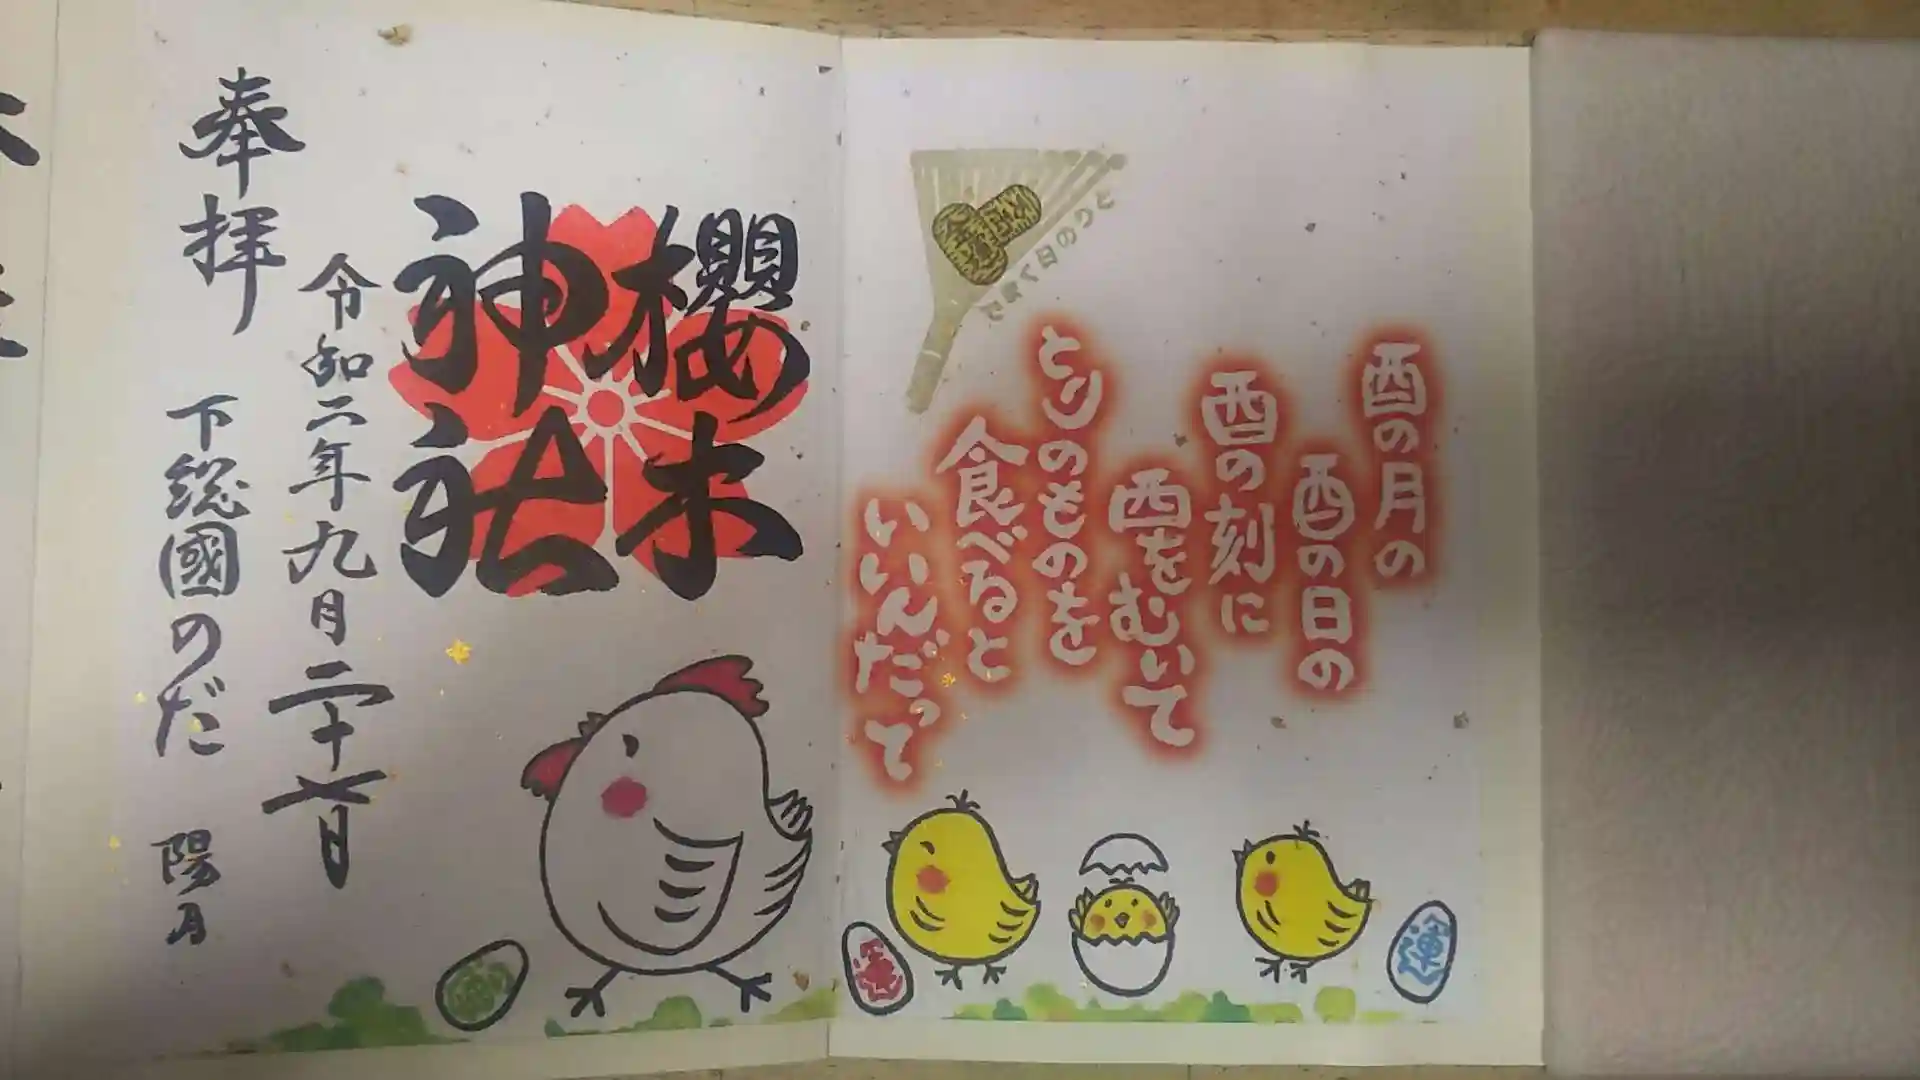 とりの日
金運
酉の月の
酉の日の
酉の刻に
酉をむいて
とりのものを
食べると
いいんだって
櫻木
神社
令和二年九月二十七日
奉拝
下総國のだ
陽月
運